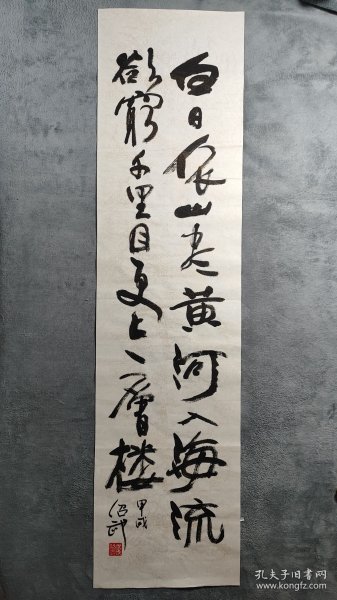 白日依山尽黄河入海流
欲穷千里目更上一层楼
甲戌
孔夫子旧书网
www.kongfz.com